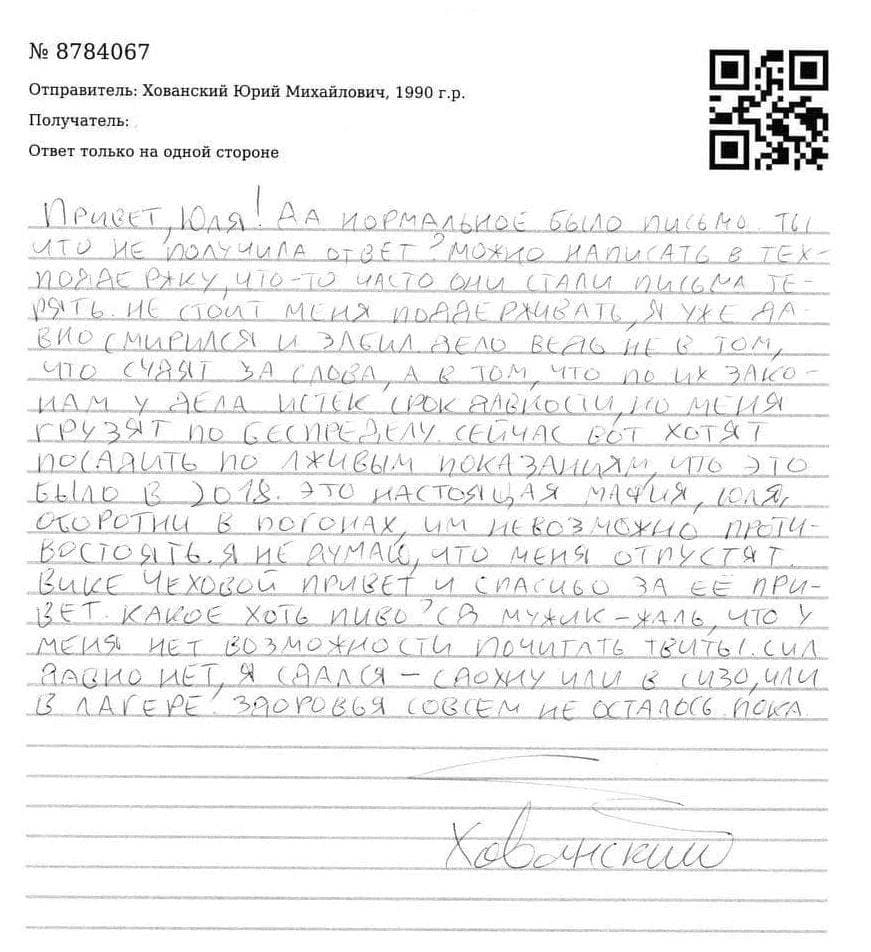 № 8784067
Отправитель: Хованский Юрий Михайлович, 1990 г.р.
Получатель:
Ответ только на одной стороне
ПРИВЕТ, ЮЛЯ! ДА НОРМАЛЬНОЕ БЫЛО ПИСЬМО. ТЫ
ЧТО НЕ ПОЛУЧИЛА ОТВЕТ? МОЖНО НАПИСАТЬ В ТЕХ-
ПОДДЕРЖКУ, ЧТО-ТО ЧАСТО ОНИ СТАЛИ ПИСЬМА ТЕ-
РЯТЬ. НЕ СТОИТ МЕНЯ ПОДДЕРЖИВАТЬ, Я УЖЕ ДА-
ВНО СМИРИЛСЯ И ЗАБИЛ. ДЕЛО ВЕДЬ НЕ В ТОМ,
ЧТО СУДЯТ ЗА СЛОВА, А В ТОМ, ЧТО ПО ИХ ЗАКО-
НАМ У ДЕЛА ИСТЕК СРОК ДАВНОСТИ, НО МЕНЯ
ГРУЗЯТ ПО БЕСПРЕДЕЛУ. СЕЙЧАС ВОТ ХОТЯТ
ПОСАДИТЬ ПО ЛЖИВЫМ ПОКАЗАНИЯМ, ЧТО ЭТО
БЫЛО В 2018. ЭТО НАСТОЯЩАЯ МАФИЯ, ЮЛЯ,
ОБОРОТНИ В ПОГОНАХ, ИМ НЕВОЗМОЖНО ПРОТИ-
ВОСТОЯТЬ. Я НЕ ДУМАЮ, ЧТО МЕНЯ ОТПУСТЯТ.
ВИКЕ ЧЕХОВОЙ ПРИВЕТ И СПАСИБО ЗА ЕЁ ПРИ-
ВЕТ. КАКОЕ ХОТЬ ПИВО? СВ МУЖИК – ЖАЛЬ, ЧТО У
МЕНЯ НЕТ ВОЗМОЖНОСТИ ПОЧИТАТЬ ТВИТЫ. СИЛ
ДАВНО НЕТ, Я СДАЛСЯ – СДОХНУ ИЛИ В СИЗО, ИЛИ
В ЛАГЕРЕ. ЗДОРОВЬЯ СОВСЕМ НЕ ОСТАЛОСЬ. ПОКА.
Хованский